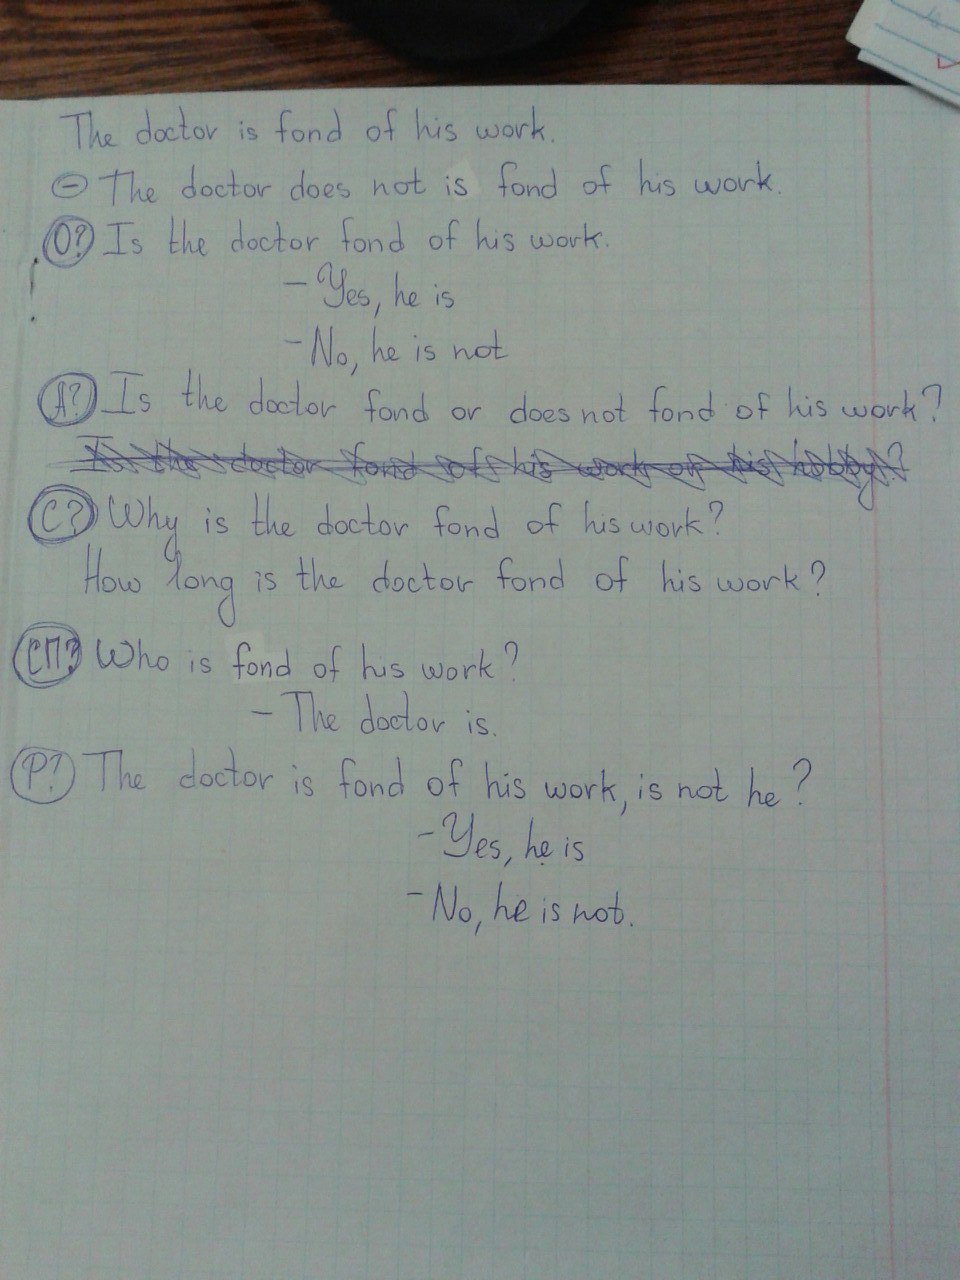 The doctor is fond of his work.
⊖ The doctor does not is fond of his work.
О? Is the doctor fond of his work.
- Yes, he is
- No, he is not
А? Is the doctor fond or does not fond of his work?
Is the doctor fond of his work or his hobby?
С? Why is the doctor fond of his work?
How long is the doctor fond of his work?
СП? Who is fond of his work?
- The doctor is.
Р? The doctor is fond of his work, is not he?
- Yes, he is
- No, he is not.